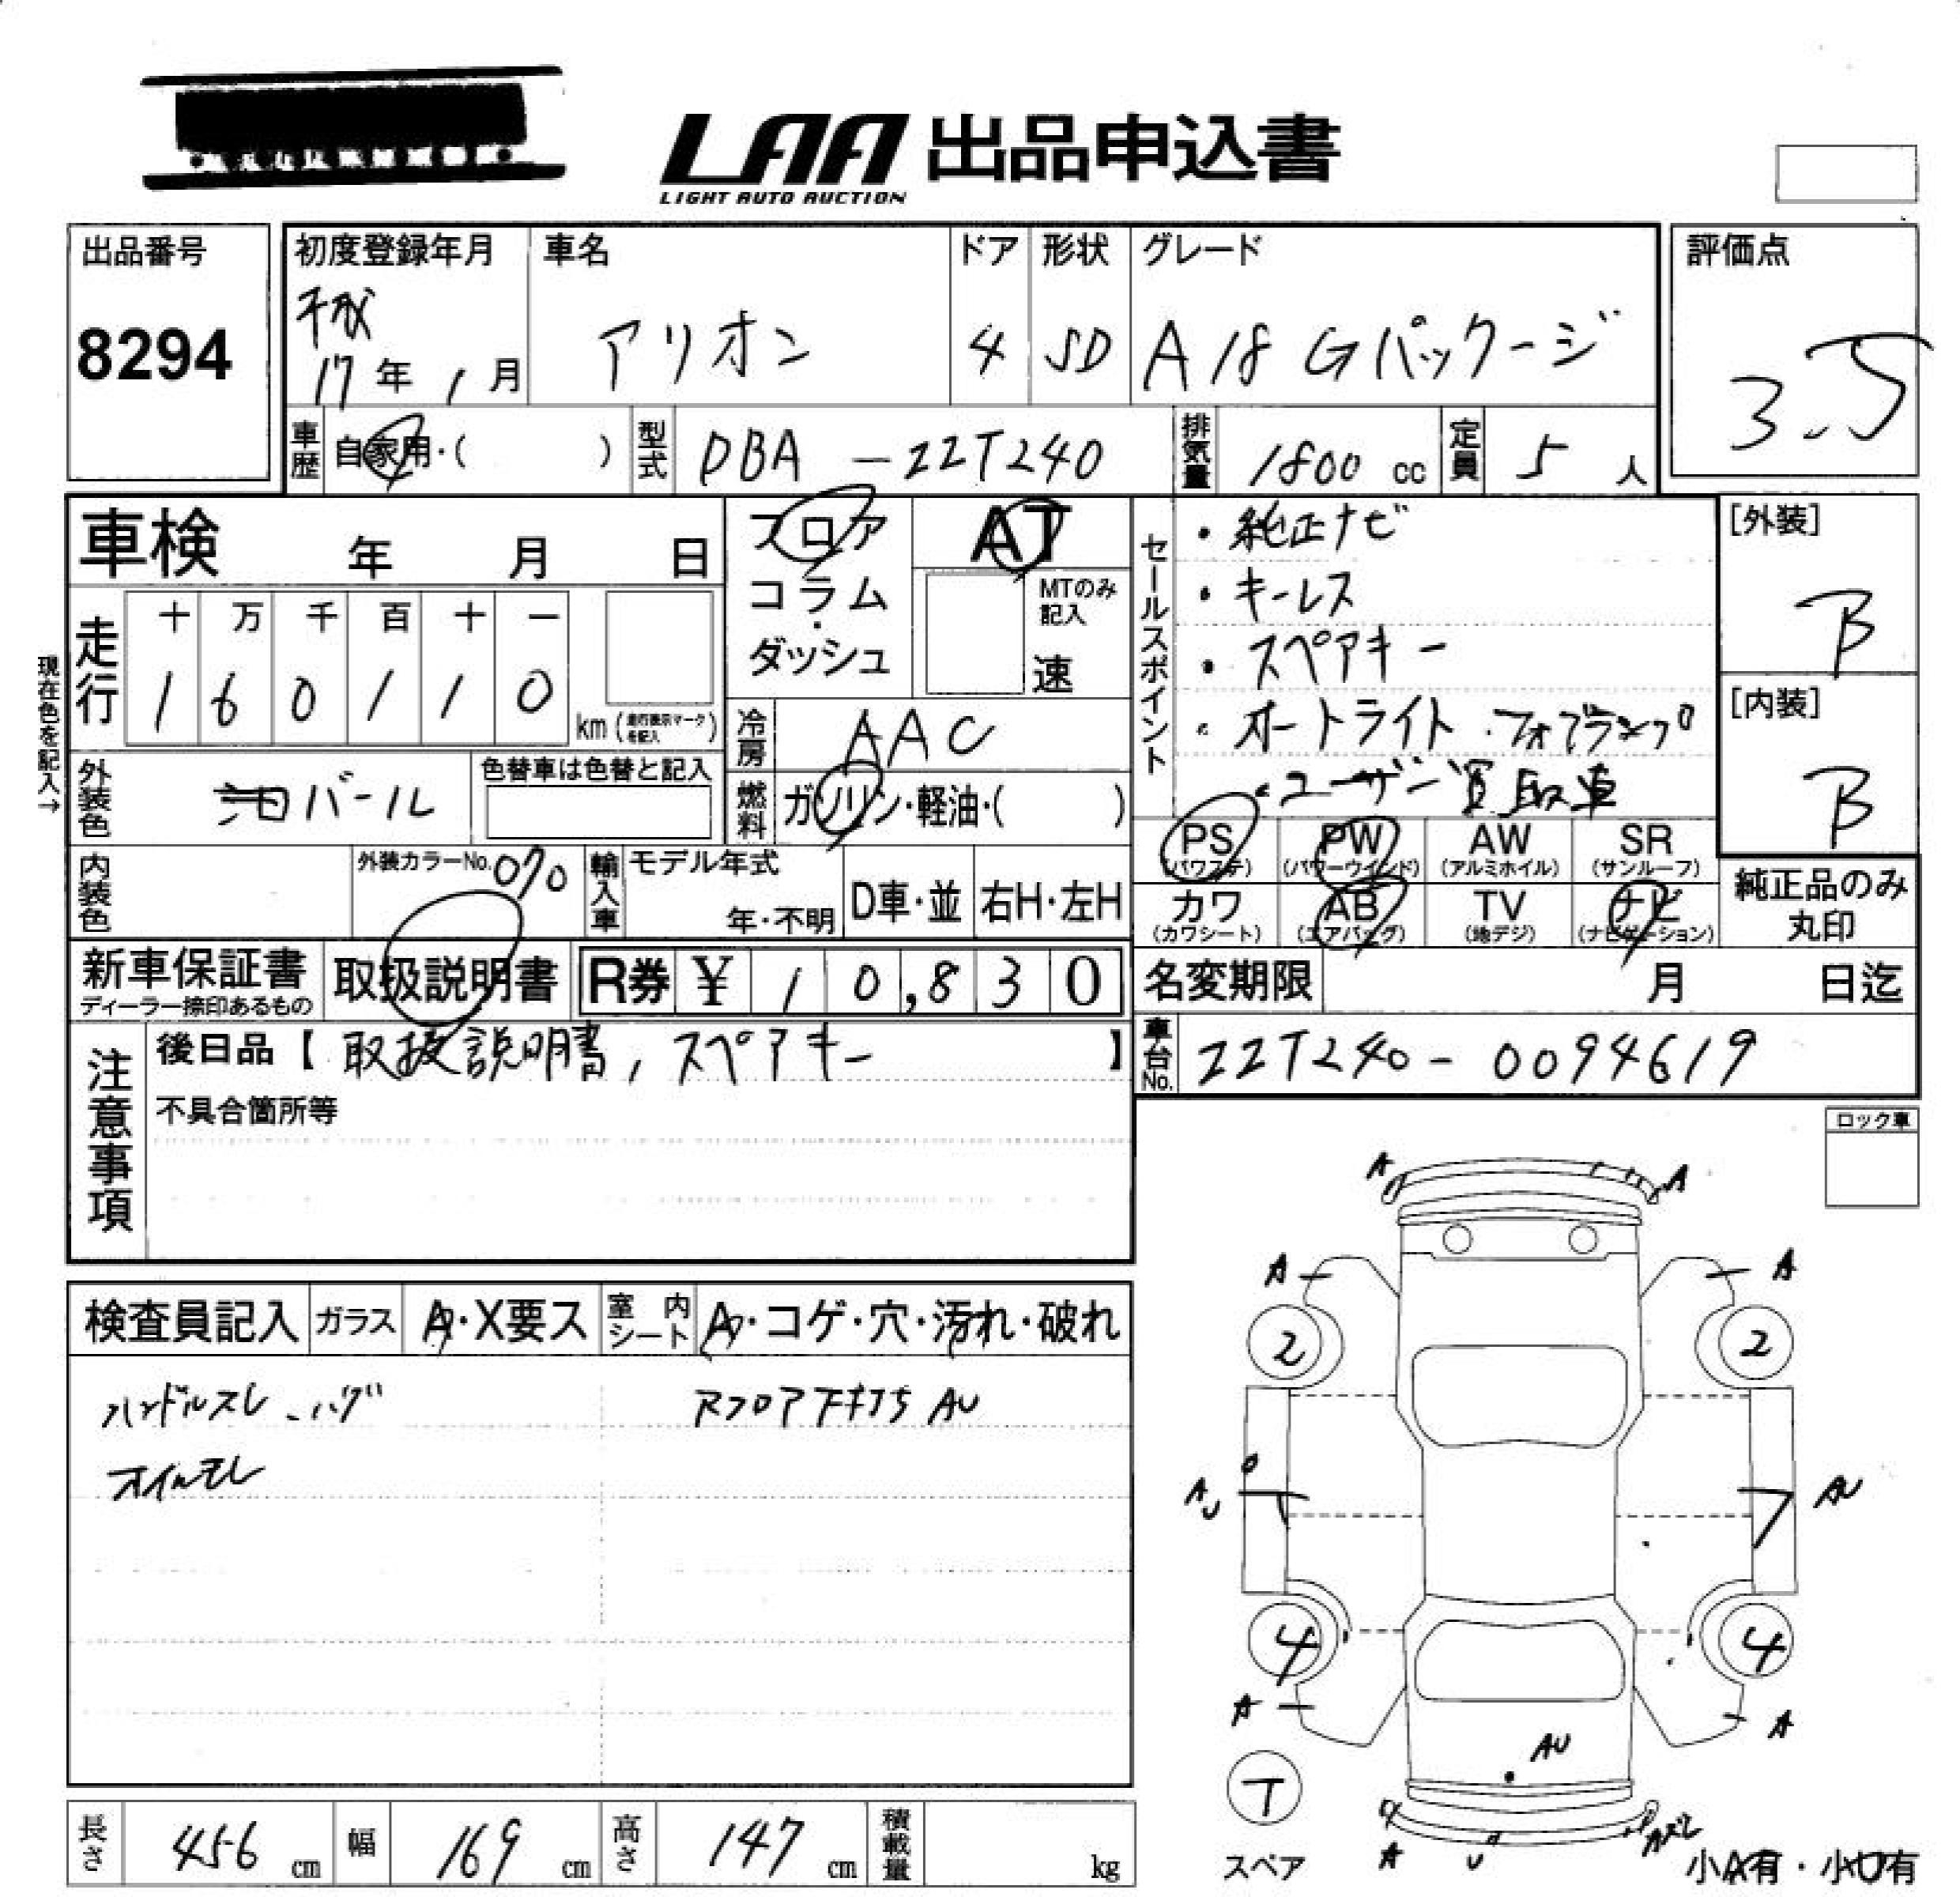 LAA 出品申込書
LIGHT AUTO AUCTION
出品番号
8294
初度登録年月
平成
17年 1月
車名
アリオン
ドア
4
形状
SD
グレード
A18 Gパッケージ
評価点
3.5
車歴
自家用・( )
型式
DBA-ZZT240
排気量
1800 cc
定員
5 人
車検 年 月 日
走行
十 万 千 百 十 一
1 6 0 1 1 0
km (走行表示マークを記入)
現在色を記入→
外装色
パール
色替車は色替と記入
内装色
外装カラーNo.
070
輸入車
モデル年式
年・不明
D車・並
右H・左H
フロア
コラム
・
ダッシュ
AT
MTのみ
記入
速
冷房
AAC
燃料
ガソリン・軽油・( )
セールスポイント
・純正ナビ
・キーレス
・スペアキー
・オートライト・フォグランプ
・ユーザー買取車
PS
(パワステ)
PW
(パワーウインド)
AW
(アルミホイル)
SR
(サンルーフ)
カワ
(カワシート)
AB
(エアバッグ)
TV
(地デジ)
ナビ
(ナビゲーション)
[外装]
B
[内装]
B
純正品のみ
丸印
新車保証書
ディーラー捺印あるもの
取扱説明書
R券 ¥ 10,830
名変期限 月 日迄
車台No.
ZZT240-0094619
注意事項
後日品【取扱説明書,スペアキー】
不具合箇所等
ロック車
検査員記入
ガラス
A・X要ス
室内シート
A・コゲ・穴・汚れ・破れ
ハンドルスレ・ハゲ
オイルモレ
A
A
A
A
2
2
AU
AU
4
4
A
A
AU
T
スペア
A
U
Aズレ
小A有・小U有
長さ 456 cm
幅 169 cm
高さ 147 cm
積載量 kg